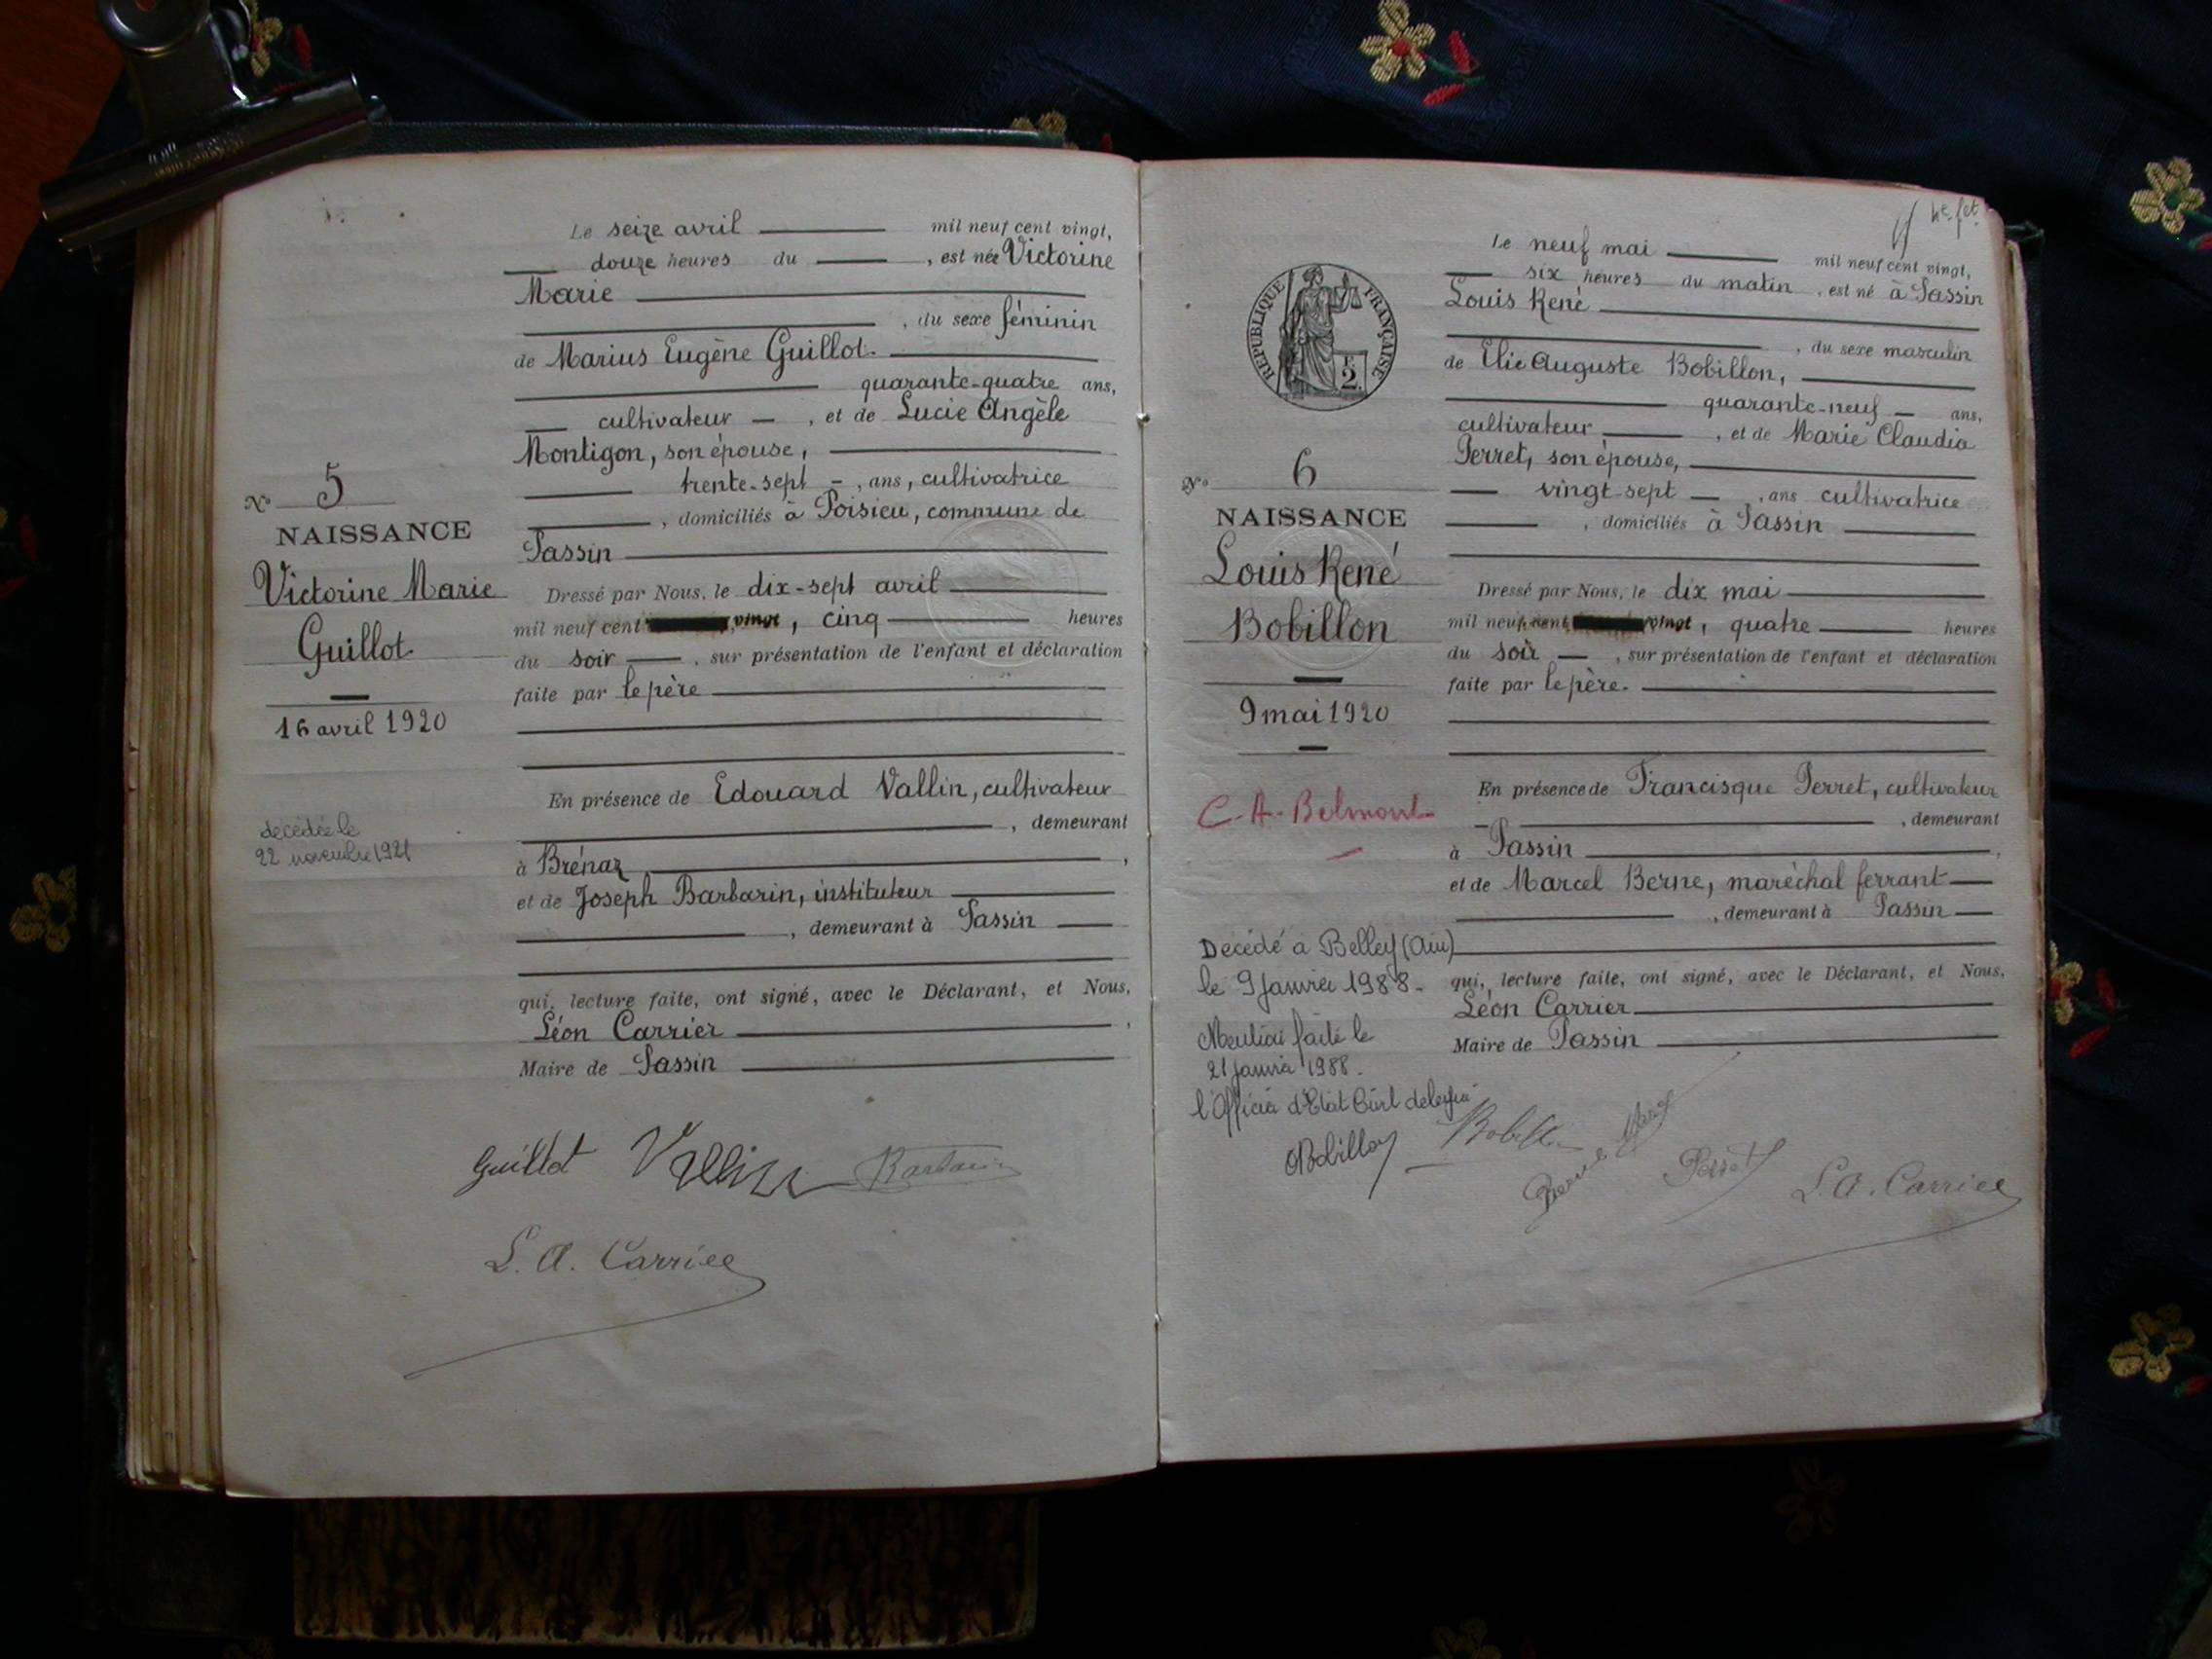 Le seize avril mil neuf cent vingt,
douze heures du , est née Victorine
Marie
, du sexe féminin
de Marius Eugène Guillot.
quarante-quatre ans,
cultivateur , et de Lucie Angèle
Montigon, son épouse,
trente-sept , ans, cultivatrice
, domiciliés à Poisieu, commune de
Passin
Dressé par Nous, le dix-sept avril
mil neuf cent vingt, cinq heures
du soir , sur présentation de l'enfant et déclaration
faite par le père
En présence de Edouard Vallin, cultivateur
, demeurant
à Brénaz ,
et de Joseph Barbarin, instituteur
, demeurant à Passin
qui, lecture faite, ont signé, avec le Déclarant, et Nous,
Léon Carrier ,
Maire de Passin
N° 5
NAISSANCE
Victorine Marie
Guillot
16 avril 1920
décédée le
22 novembre 1921
Guillot Vallin Barbarin
L. A. Carrier
4e fet
Le neuf mai mil neuf cent vingt,
six heures du matin , est né à Passin
Louis René
, du sexe masculin
de Elie Auguste Bobillon,
quarante-neuf ans,
cultivateur , et de Marie Claudia
Perret, son épouse,
vingt-sept , ans cultivatrice
, domiciliés à Passin
Dressé par Nous, le dix mai
mil neuf cent vingt, quatre heures
du soir , sur présentation de l'enfant et déclaration
faite par le père.
En présence de Francisque Perret, cultivateur
, demeurant
à Passin ,
et de Marcel Berne, maréchal ferrant
, demeurant à Passin
qui, lecture faite, ont signé, avec le Déclarant, et Nous,
Léon Carrier
Maire de Passin
RÉPUBLIQUE FRANÇAISE
F.
2.
N° 6
NAISSANCE
Louis René
Bobillon
9 mai 1920
C. A. Belmont
Décédé à Belley (Ain)
le 9 Janvier 1988.
Mention faite le
21 janvier 1988.
l'Officier d'Etat Civil délégué
Bobillon Bobillon Berne Perret L. A. Carrier